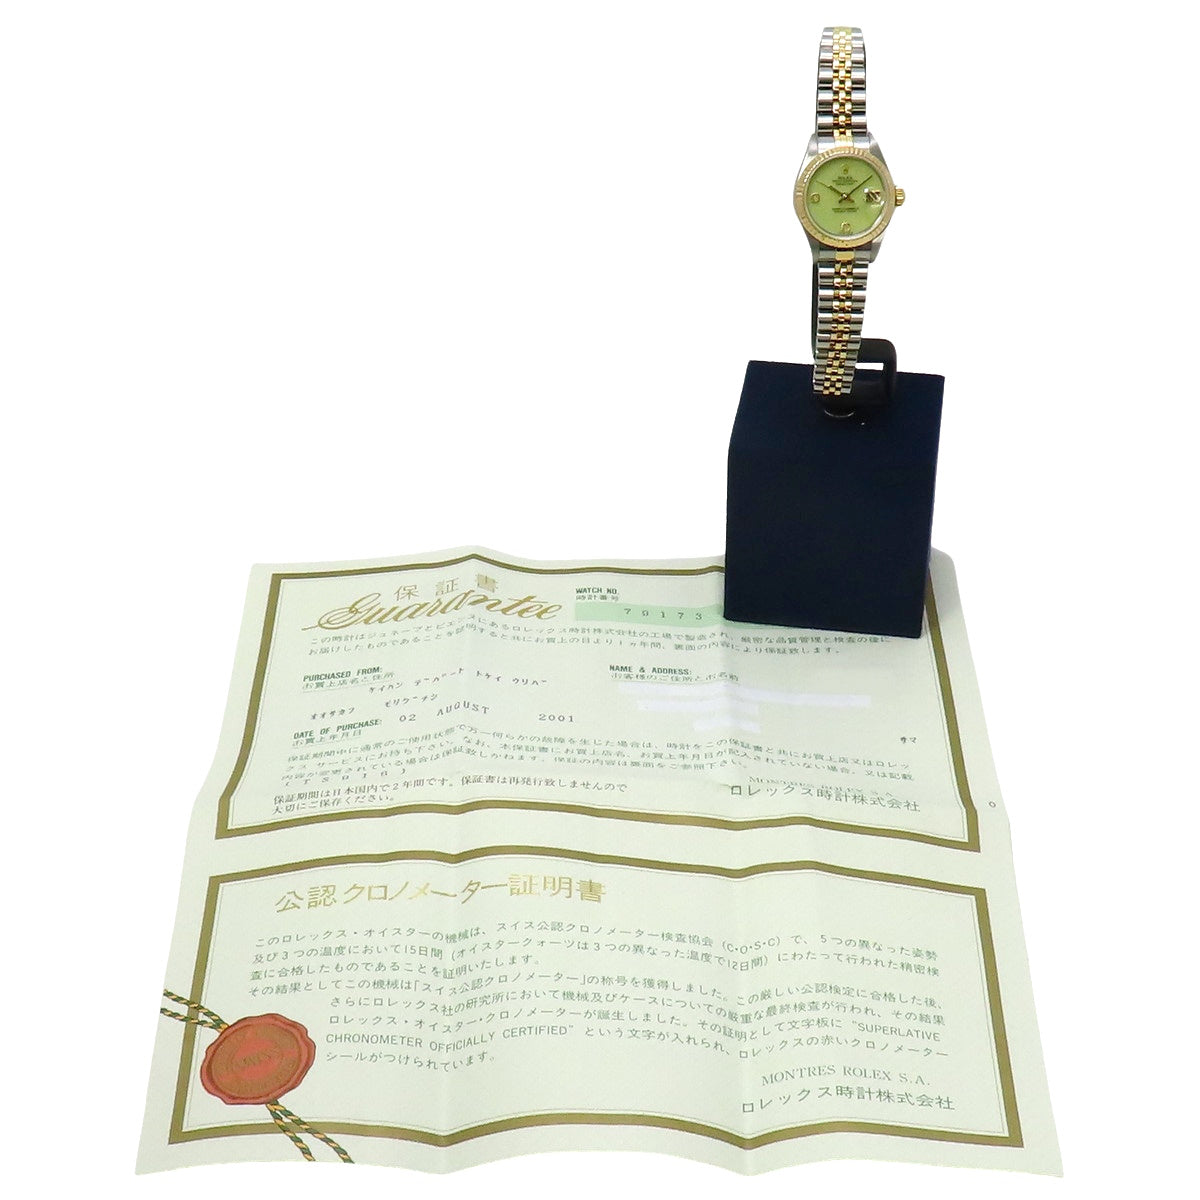 ROLEX
保証書
Guarantee
WATCH NO.
時計番号
79173
この時計はジュネーブとビエンヌにあるロレックス時計株式会社の工場で製造され、厳密な品質管理と検査の後に
お届けしたものであることを証明すると共にお買上の日より1ヵ年間、裏面の内容により保証致します。
PURCHASED FROM:
お買上店名と住所
NAME & ADDRESS:
お客様のご住所とお名前
ケイハン デパート トケイ ウリバ
オオサカフ モリグチシ
サマ
DATE OF PURCHASE:
お買上年月日
02 AUGUST 2001
保証期間中に通常のご使用状態で万一何らかの故障を生じた場合は、時計をこの保証書と共にお買上店又はロレッ
クス サービスにお持ち下さい。なお、本保証書にお買上店名、お買上年月日が記入されていない場合、又は記載
内容が変更されている場合は保証致しかねます。保証の内容は裏面をご参照下さい。
保証期間は日本国内で2年間です。保証書は再発行致しませんので
大切にご保存ください。
MONTRES ROLEX S.A.
ロレックス時計株式会社
公認クロノメーター証明書
このロレックス・オイスターの機械は、スイス公認クロノメーター検査協会 (C・O・S・C) で、5つの異なった姿勢
及び3つの温度において15日間 (オイスタークォーツは3つの異なった温度で12日間) にわたって行われた精密検
査に合格したものであることを証明いたします。
その結果としてこの機械は「スイス公認クロノメーター」の称号を獲得しました。この厳しい公認検定に合格した後、
さらにロレックス社の研究所において機械及びケースについての厳重な最終検査が行われ、その結果
ロレックス・オイスター・クロノメーターが誕生しました。その証明として文字板に “SUPERLATIVE
CHRONOMETER OFFICIALLY CERTIFIED” という文字が入れられ、ロレックスの赤いクロノメーター
シールがつけられています。
MONTRES ROLEX S.A.
ロレックス時計株式会社